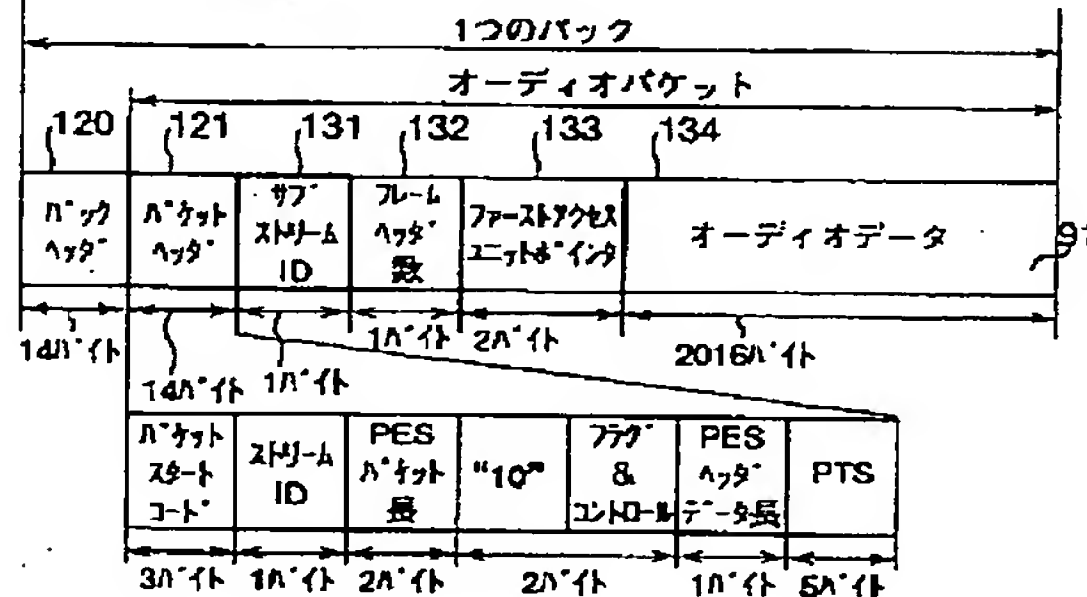 1つのパック
オーディオパケット
120 121 131 132 133 134
パック
ヘッダ
パケット
ヘッダ
サブ
ストリーム
ID
フレーム
ヘッダ
数
ファーストアクセス
ユニットポインタ
オーディオデータ
14バイト
14バイト
1バイト
1バイト
2バイト
2016バイト
パケット
スタート
コード
ストリーム
ID
PES
パケット
長
“10”
フラグ
&
コントロール
PES
ヘッダ
データ長
PTS
3バイト
1バイト
2バイト
2バイト
1バイト
5バイト